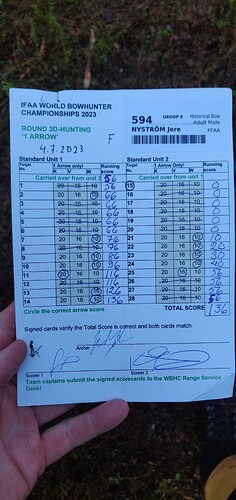 IFAA WORLD BOWHUNTER
CHAMPIONSHIPS 2023
594 GROUP 8 Historical Bow
Adult Male
ROUND 3D-HUNTING
'1 ARROW'
F
NYSTRÖM Jere FFAA
4.7.2023
Standard Unit 1 Standard Unit 2
Target No. 1 Arrow Only! K V W Running score Target No. 1 Arrow Only! K V W Running score
Carried over from unit 56 Carried over from unit
1 20 16 10 56 15 20 16 10 0
2 20 16 10 66 16 20 16 10 0
3 20 16 10 66 17 20 16 10 0
4 20 16 10 66 18 20 16 10 0
5 20 16 10 66 19 20 16 10 0
6 20 16 10 66 20 20 16 10
7 20 16 10 76 21 20 16 10
8 20 16 10 22 20 16 10 20
9 20 16 10 86 23 20 16 10 30
10 20 16 10 96 24 20 16 10 40
11 20 16 10 116 25 20 16 10 56
12 20 16 10 116 26 20 16 10
13 20 16 10 126 27 20 16 10
14 20 16 10 136 28 20 16 10
Circle the correct arrow score TOTAL SCORE 136
Signed cards verify the Total Score is correct and both cards match.
Archer
Scorer 1 Scorer 2
Team captains submit the signed scorecards to the WBHC Range Service
Desk!